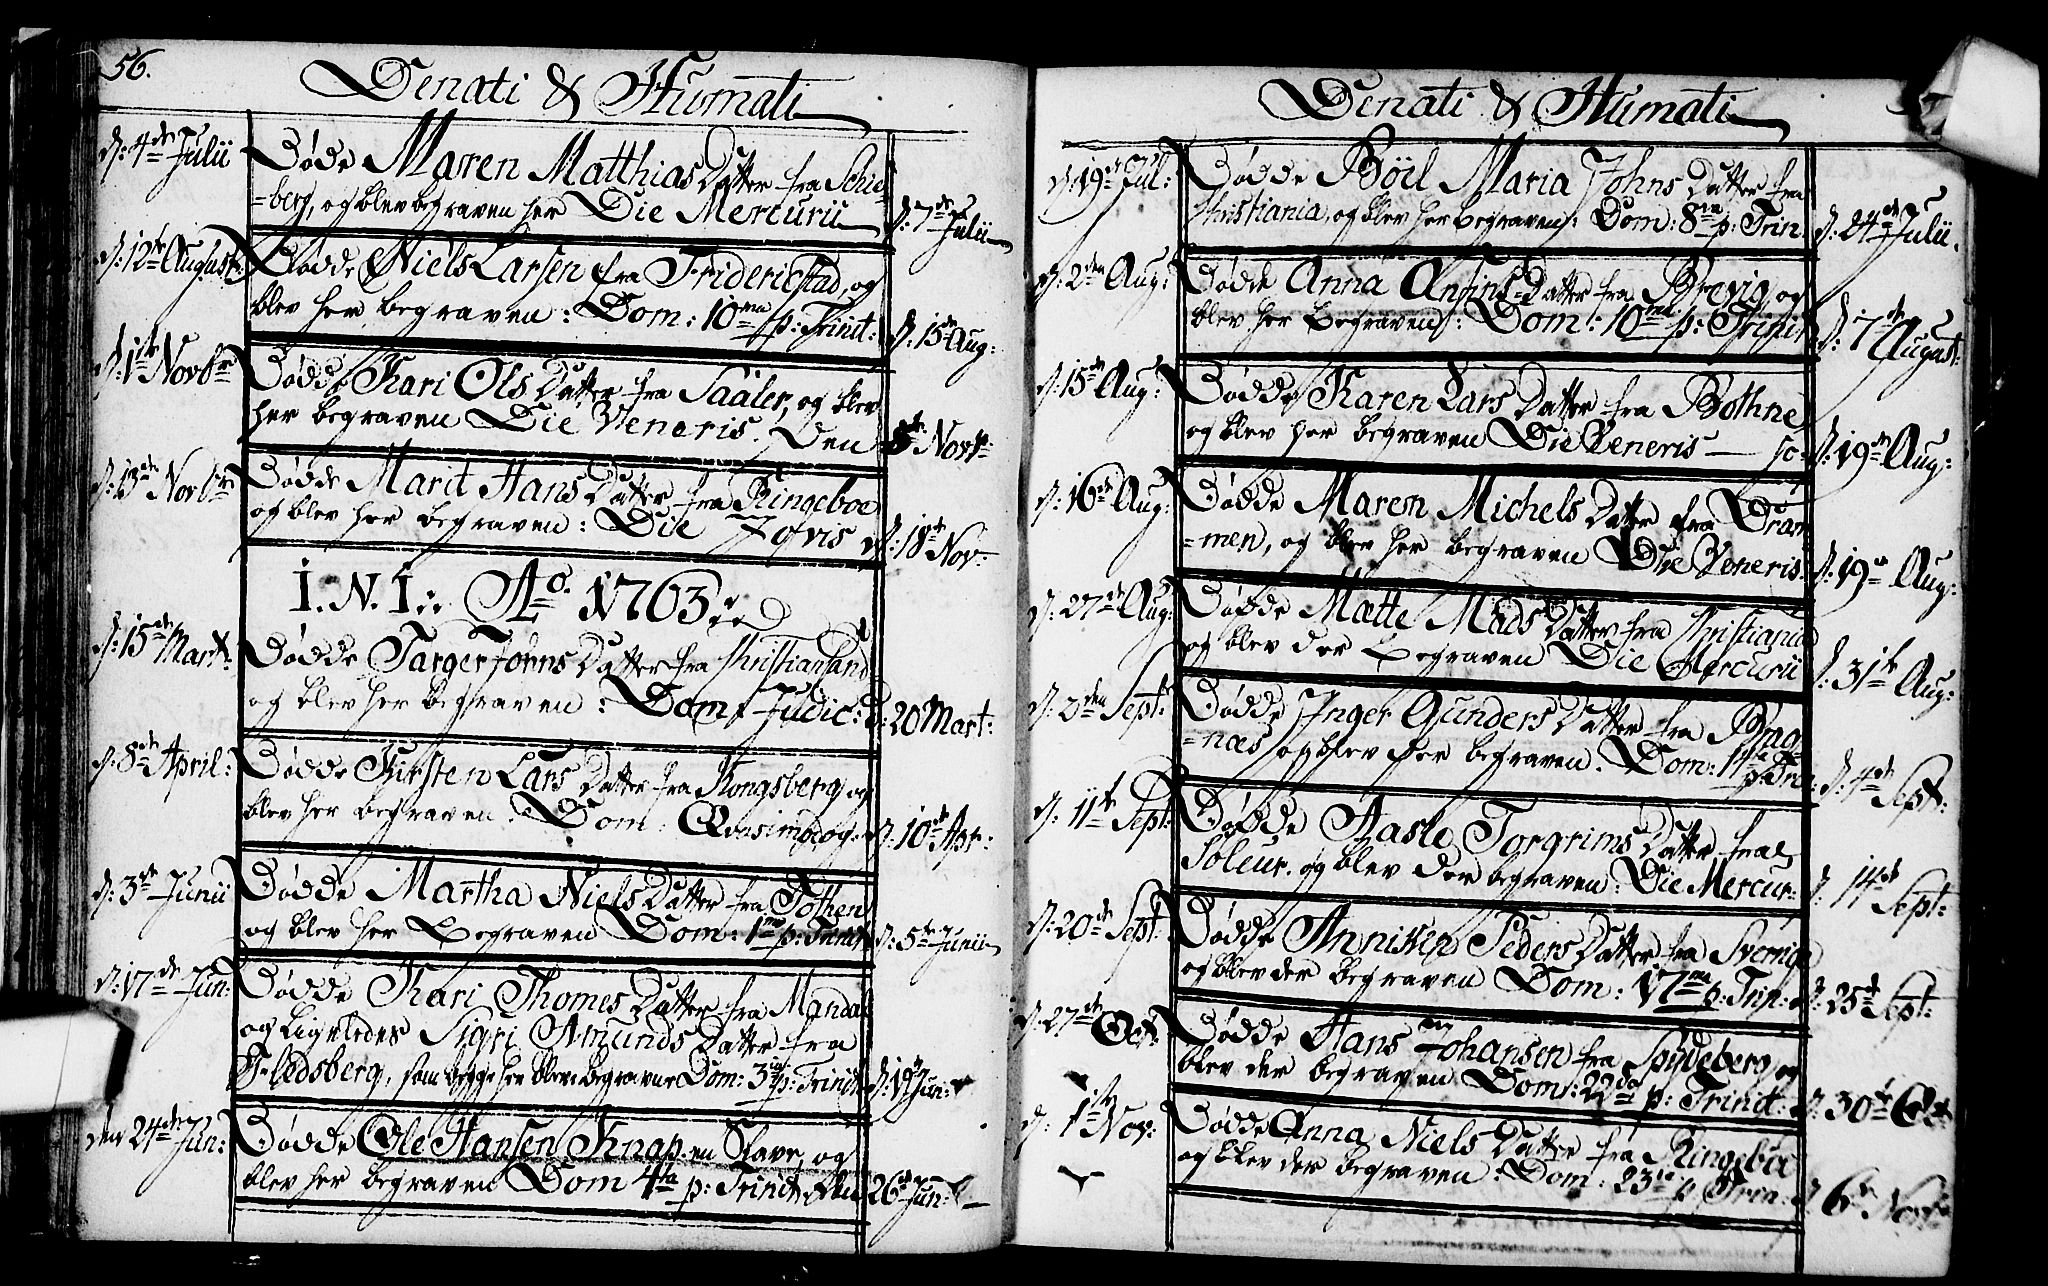 56.
Denati & Humati
d: 4de Julii
Døde Maren Matthias Datter fra Schie-
-berg, og blev begraven her Die Mercurii
d: 7de Julii
d: 12te August:
Dødde Niels Larsen fra Friderichstad, og
blev her begraven: Dom: 10ma p: Trinit:
d: 15de Aug:
d: 1te Novbr
Dødde Kari Ols Datter fra Saaler, og blev
her begraven Die Veneris. Den
5te Novr:
d: 13de Novbr
Dødde Marit Hans Datter fra Ringeboe
og blev her begraven: Die Jovis
d: 18de Nov:
I. N. I:: Ao. 1763::
d: 15de Mart:
Dødde Targer Johns Datter fra Christiansand
og blev her begraven: Dom: Judic:
d: 20 Mart:
d: 8de April:
Dødde Kirsten Lars Datter fra Kongsberg, og
blev her begraven: Dom: Qvasimodog:
d: 10de Apr:
d: 3de Junii
Dødde Martha Niels Datter fra Tothen,
og blev her Begraven Dom: 1ma p: Trinit:
d: 5te Junii
d: 17de Jun:
Dødde Kari Thomes Datter fra Mandal
og Ligeledes Sigri Amunds Datter fra
Fledsberg, som begge her bleve begravne Dom: 3tia p: Trinit:
d: 19de Jun:
den 24de Jun:
Dødde Ole Hansen Knap. en Slave, og
blev her begraven Dom 4ta p: Trinit: den
26de Jun:
Denati & Humati
57
d: 19de Jul:
Dødde Böil Maria Johns Datter fra
Christiania, og blev her begraven: Dom: 8va p: Trin.
d: 24de Julii.
d: 2den Aug:
Dødde Anna Anfins Datter fra Brevig og
blev her Begraven: Dom: 10ma p: Trinit:
d: 7de August:
d: 15de Aug:
Dødde Karen Lars Datter fra Bothne
og blev her begraven Die Veneris —
d: 19de Aug:
d: 16de Aug:
Dødde Maren Michels Datter fra Dram-
-men, og blev her begraven Die Veneris:
d: 19de Aug:
d: 27de Aug:
Dødde Mætte Mads Datter fra Christiania
og blev der Begraven Die Mercurii
d: 31te Aug:
d: 2den Sept:
Dødde Inger Gunders Datter fra Brag-
-næs, og blev her begraven. Dom: 14ta p: Trin:
d: 4de Sept:
d: 11te Sept:
Dødde Aasle Torgrims Datter fra
Soleur. og blev der begraven: Die Mercur:
d: 14de Sept:
d: 20de Sept:
Dødde Anniken Peders Datter fra Sverige
og blev der begraven Dom: 17ma p: Trin:
d: 25de Sept:
d: 27de Oct:
Dødde Hans Johansen fra Spydeberg, og
blev der begraven Dom: 22da p: Trinit:
d: 30de Oct:
d: 1te Nov:
Dødde Anna Niels Datter fra Ringeboe
og blev der begraven: Dom: 23tia p Trin:
d: 6te Nov: